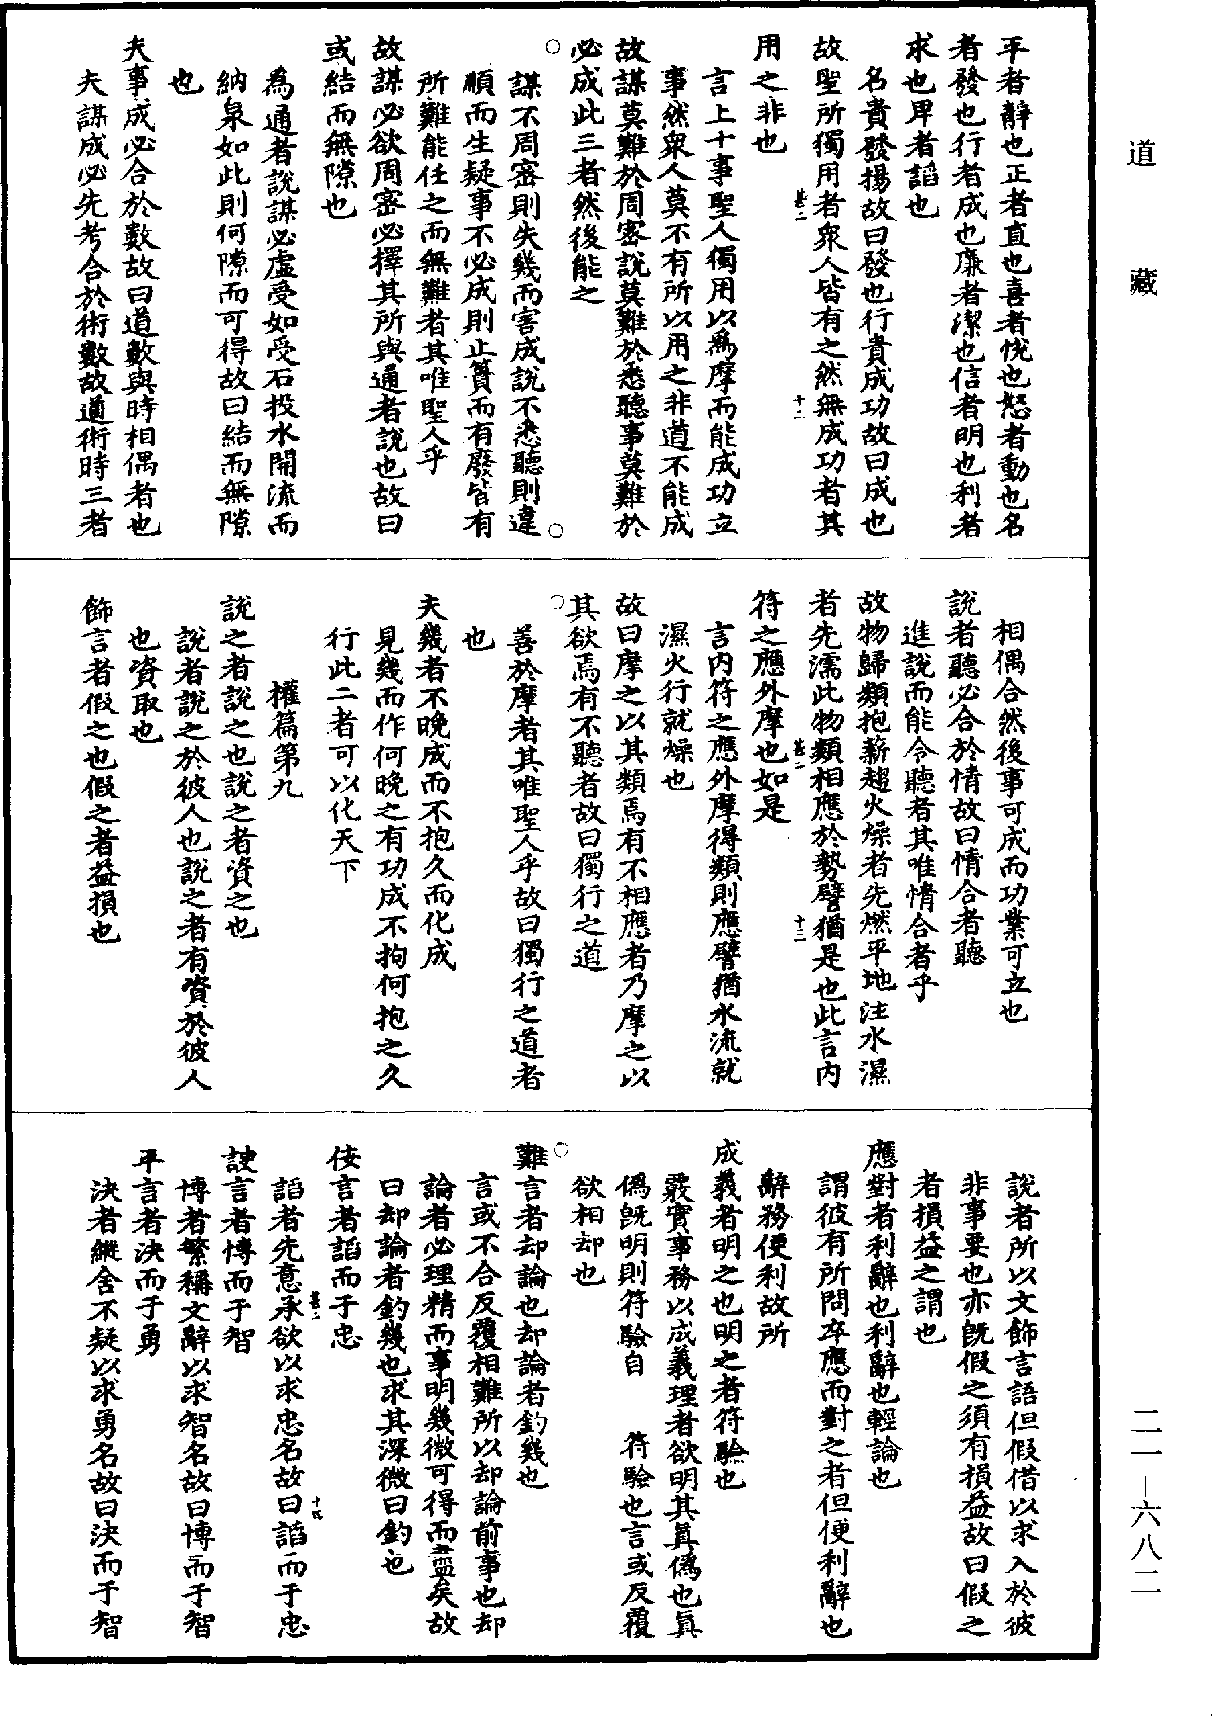 道藏
平者靜也正者直也喜者悅也怒者動也名
者發也行者成也廉者潔也信者明也利者
求也卑者謟也
名貴發揚故曰發也行貴成功故曰成也
故聖所獨用者衆人皆有之然無成功者其
用之非也
言上十事聖人獨用以爲摩而能成功立
事然衆人莫不有所以用之非道不能成
故謀莫難於周密說莫難於悉聽事莫難於
必成此三者然後能之
謀不周密則失幾而害成說不悉聽則違
順而生疑事不必成則止簣而有廢皆有
所難能任之而無難者其唯聖人乎
故謀必欲周密必擇其所與通者說也故曰
或結而無隙也
為通者說謀必虛受如受石投水開流而
納泉如此則何隙而可得故曰結而無隙
也
夫事成必合於數故曰道數與時相偶者也
夫謀成必先考合於術數故道術時三者
相偶合然後事可成而功業可立也
說者聽必合於情故曰情合者聽
進說而能令聽者其唯情合者乎
故物歸類抱薪趨火燥者先燃平地注水濕
者先濡此物類相應於勢譬猶是也此言內
符之應外摩也如是
言內符之應外摩得類則應譬猶水流就
濕火行就燥也
故曰摩之以其類焉有不相應者乃摩之以
其欲焉有不聽者故曰獨行之道
善於摩者其唯聖人乎故曰獨行之道者
也
夫幾者不晚成而不抱久而化成
見幾而作何晚之有功成不拘何抱之久
行此二者可以化天下
權篇第九
說之者說之也說之者資之也
說者說之於彼人也說之者有資於彼人
也資取也
飾言者假之也假之者益損也
說者所以文飾言語但假借以求入於彼
非事要也亦旣假之須有損益故曰假之
者損益之謂也
應對者利辭也利辭也輕論也
謂彼有所問卒應而對之者但便利辭也
辭務便利故所
成義者明之也明之者符驗也
覈實事務以成義理者欲明其眞僞也眞
僞旣明則符驗自 符驗也言或反覆
欲相却也
難言者却論也却論者釣幾也
言或不合反覆相難所以却論前事也却
論者必理精而事明幾微可得而盡矣故
曰却論者釣幾也求其深微曰釣也
佞言者謟而于忠
謟者先意承欲以求忠名故曰謟而于忠
諛言者博而于智
博者繁稱文辭以求智名故曰博而于智
平言者決而于勇
決者縱舍不疑以求勇名故曰決而于智
二一—六八二